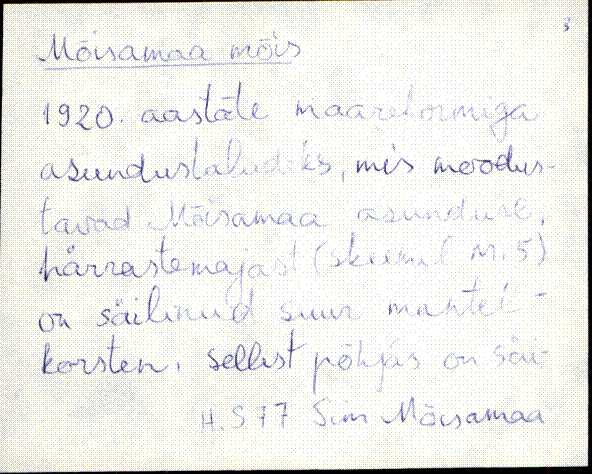 3
Mõisamaa mõis
1920. aastate maareformiga
asundustaludeks, mis moodus-
tavad Mõisamaa asunduse,
härrastemajast (skeemil nr. 5)
on säilinud suur mantel-
korsten. Sellest põhjas on säi-
Mõisamaa